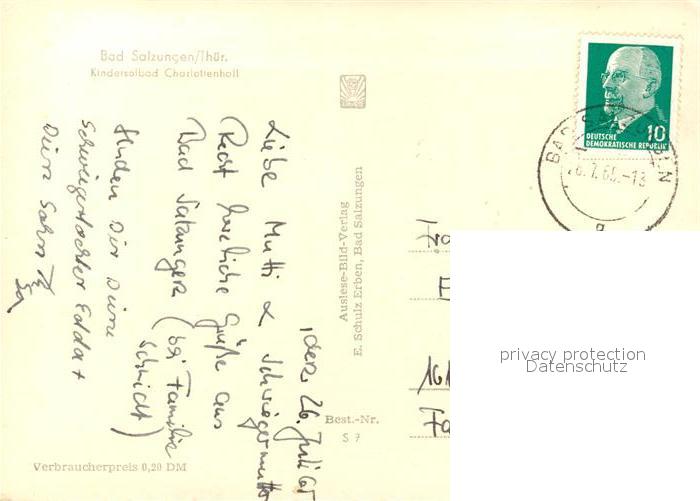 Bad Salzungen/Thür.
Kindersolbad Charlottenhall
, den 26. Juli 65
Liebe Mutti & Schwiegermutter
Recht herzliche Grüße aus
Bad Salzungen (bei Familie
Schmidt)
senden Dir Deine
Schwiegertochter Edda +
Dein Sohn
Auslese-Bild-Verlag
E. Schulz Erben, Bad Salzungen
Best.-Nr.
S 7
Verbraucherpreis 0,20 DM
10
DEUTSCHE
DEMOKRATISCHE REPUBLIK
BAD SALZUNGEN
26.7.65.-13
a
161
privacy protection
Datenschutz